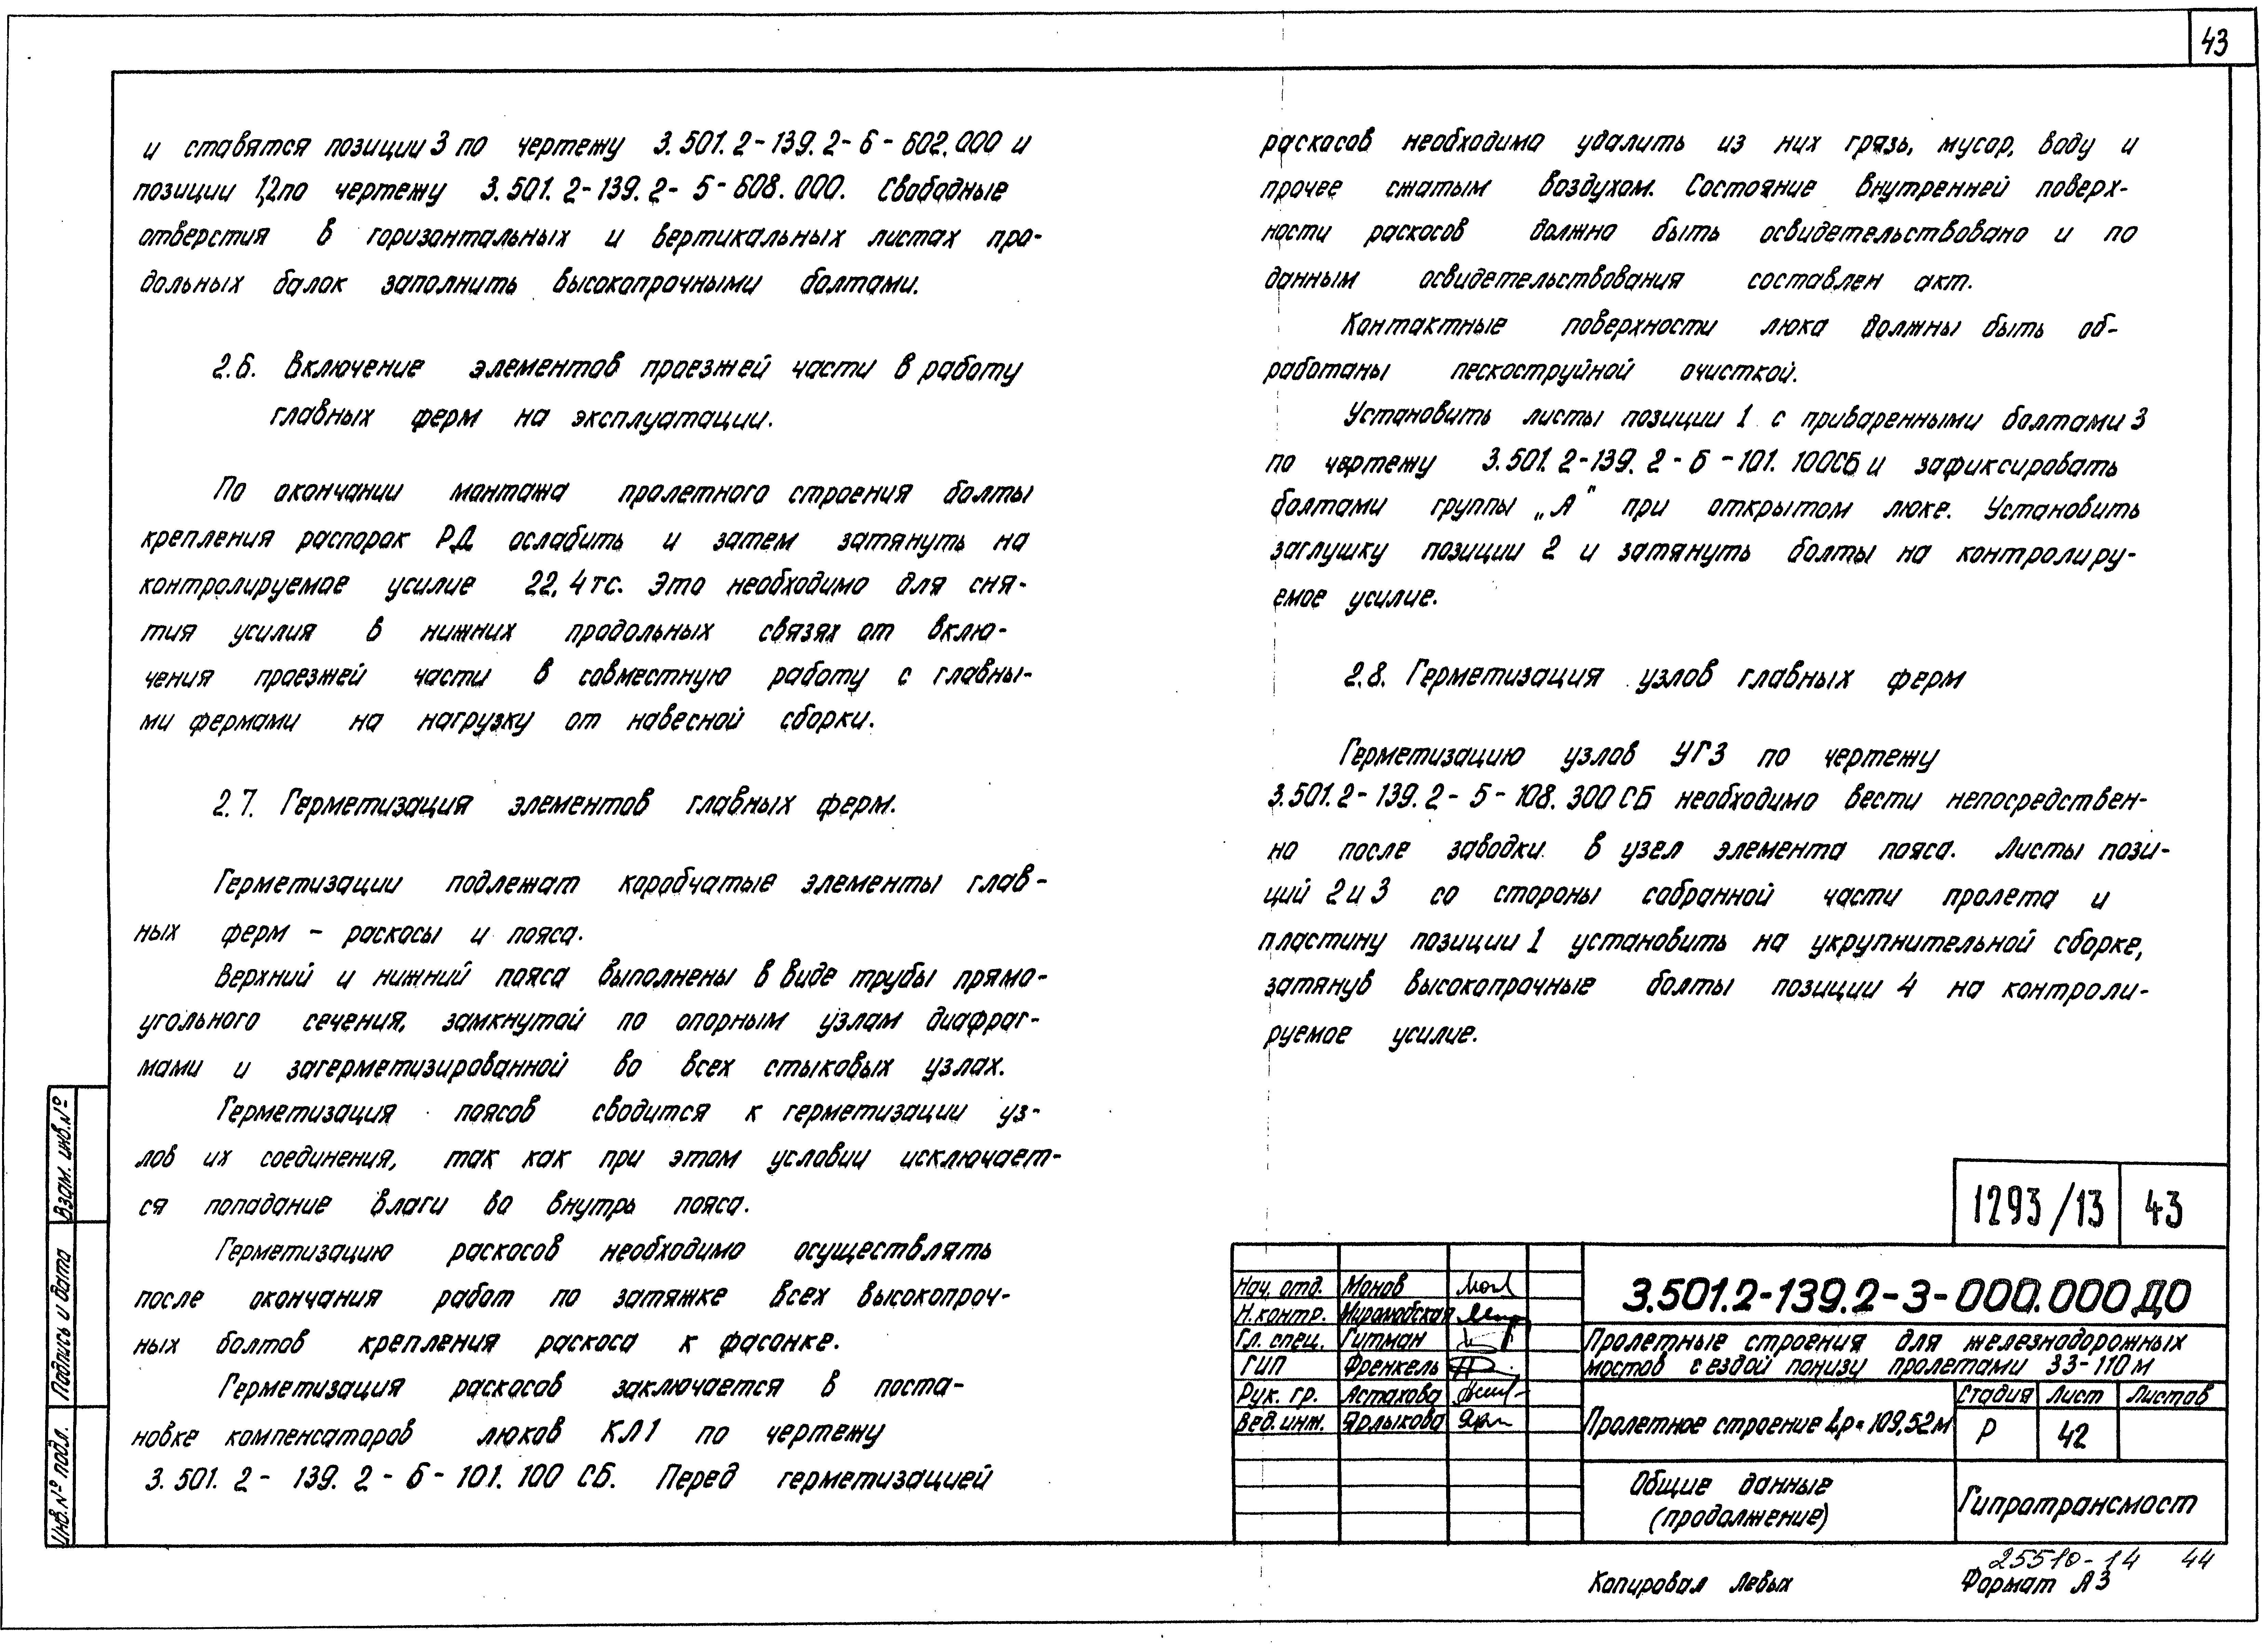 43
и ставятся позиции 3 по чертежу 3.501.2-139.2-6-602.000 и
позиции 1,2 по чертежу 3.501.2-139.2-5-608.000. Свободные
отверстия в горизонтальных и вертикальных листах про-
дольных балок заполнить высокопрочными болтами.
2.6. Включение элементов проезжей части в работу
главных ферм на эксплуатации.
По окончании монтажа пролетного строения болты
крепления распорок РД ослабить и затем затянуть на
контролируемое усилие 22,4 тс. Это необходимо для сня-
тия усилия в нижних продольных связях от вклю-
чения проезжей части в совместную работу с главны-
ми фермами на нагрузку от навесной сборки.
2.7. Герметизация элементов главных ферм.
Герметизации подлежат коробчатые элементы глав-
ных ферм - раскосы и пояса.
Верхний и нижний пояса выполнены в виде трубы прямо-
угольного сечения, замкнутой по опорным узлам диафраг-
мами и загерметизированной во всех стыковых узлах.
Герметизация поясов сводится к герметизации уз-
лов их соединения, так как при этом условии исключает-
ся попадание влаги во внутрь пояса.
Герметизацию раскосов необходимо осуществлять
после окончания работ по затяжке всех высокопроч-
ных болтов крепления раскоса к фасонке.
Герметизация раскосов заключается в поста-
новке компенсаторов люков КЛ1 по чертежу
3.501.2-139.2-6-101.100 СБ. Перед герметизацией
раскосов необходимо удалить из них грязь, мусор, воду и
прочее сжатым воздухом. Состояние внутренней поверх-
ности раскосов должно быть освидетельствовано и по
данным освидетельствования составлен акт.
Контактные поверхности люка должны быть об-
работаны пескоструйной очисткой.
Установить листы позиции 1 с приваренными болтами 3
по чертежу 3.501.2-139.2-6-101.100СБ и зафиксировать
болтами группы „А" при открытом люке. Установить
заглушку позиции 2 и затянуть болты на контролиру-
емое усилие.
2.8. Герметизация узлов главных ферм
Герметизацию узлов УГ3 по чертежу
3.501.2-139.2-5-108.300 СБ необходимо вести непосредствен-
но после заводки в узел элемента пояса. Листы пози-
ций 2 и 3 со стороны собранной части пролета и
пластину позиции 1 установить на укрупнительной сборке,
затянув высокопрочные болты позиции 4 на контроли-
руемое усилие.
Взам. инв. №
Подпись и дата
Инв. № подл.
1293/13 43
Нач. отд. Монов
Н. контр. Мирамовская
Гл. спец. Гитман
ГИП Френкель
Рук. гр. Астахова
Вед. инж. Ярлыкова
3.501.2-139.2-3-000.000 ДО
Пролетные строения для железнодорожных
мостов с ездой понизу пролетами 33-110 м
Пролетное строение Lр=109,52м
Стадия Лист Листов
Р 42
Общие данные
(продолжение)
Гипротрансмост
25510-14 44
Копировал Левых Формат А3